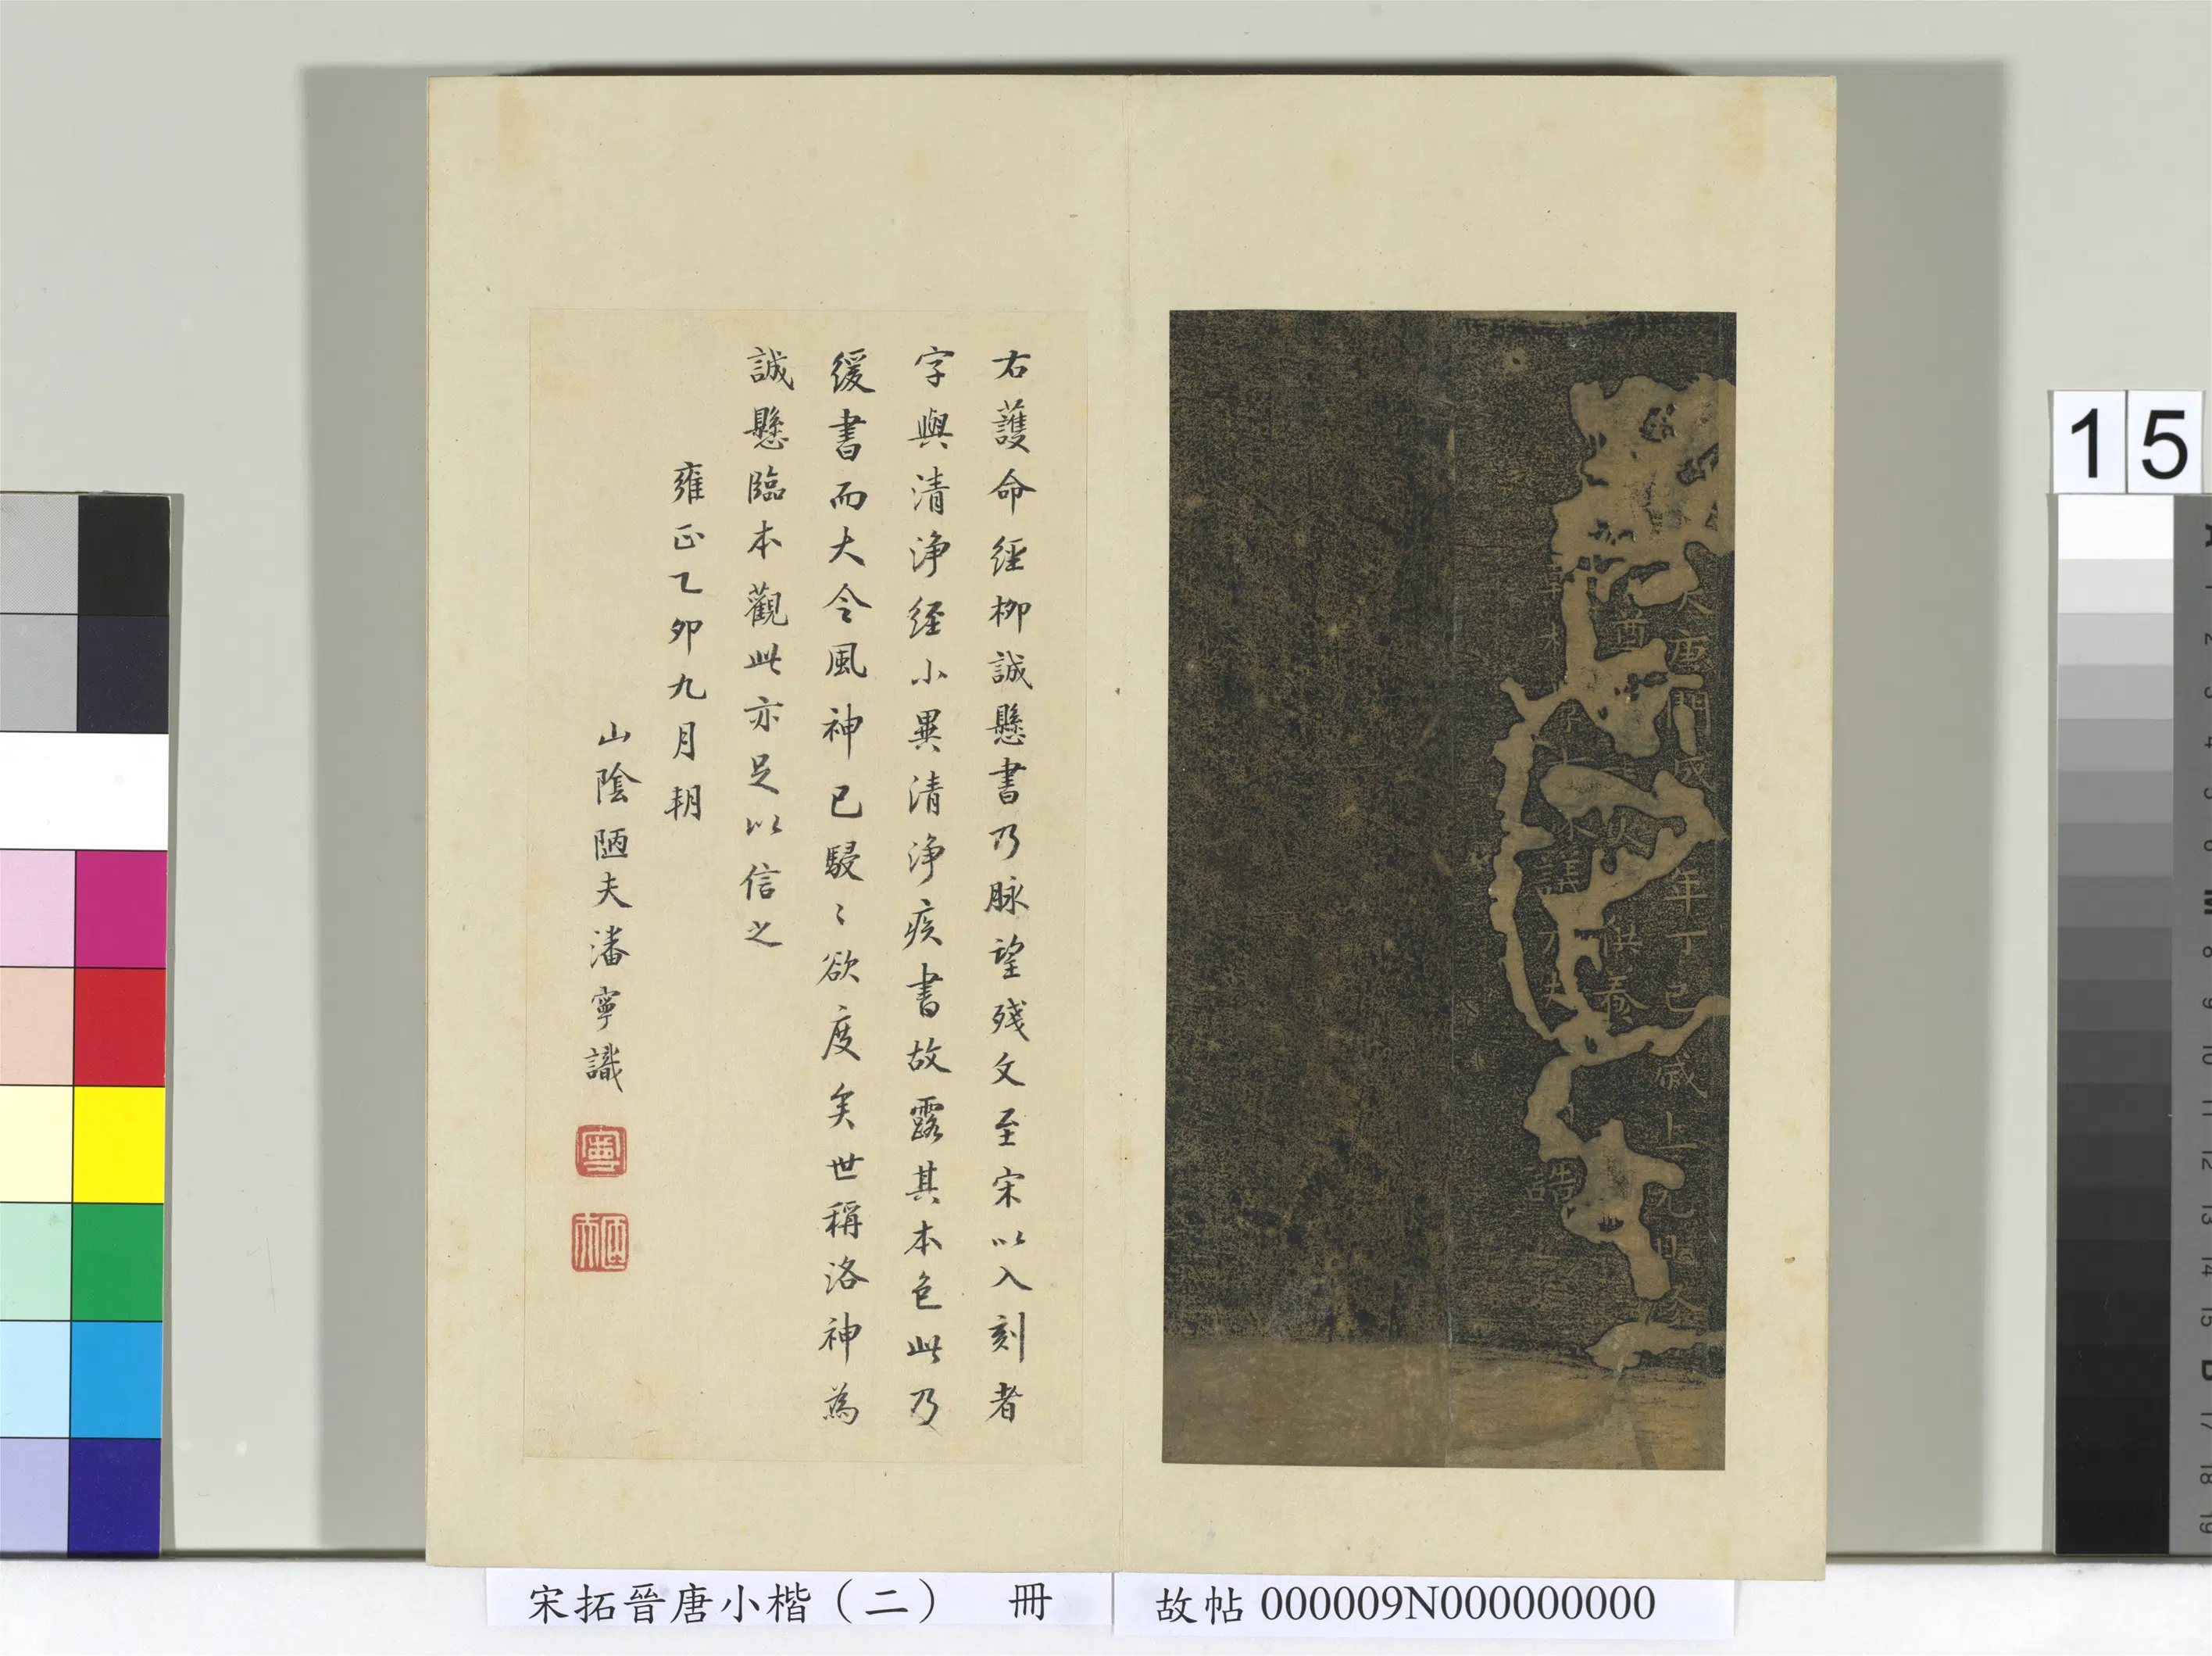 大唐開成
年丁巳歲上元日
酋
供養
議
大夫
誥
右護命經柳誠懸書乃脉望殘文至宋以入刻者
字與清淨經小異清淨疾書故露其本色此乃
緩書而大令風神已駸〻欲度矣世稱洛神為
誠懸臨本觀此亦足以信之
雍正乙夘九月朝
山陰陋夫潘寧識
寧
15
宋拓晉唐小楷（二） 冊
故帖 000009N000000000